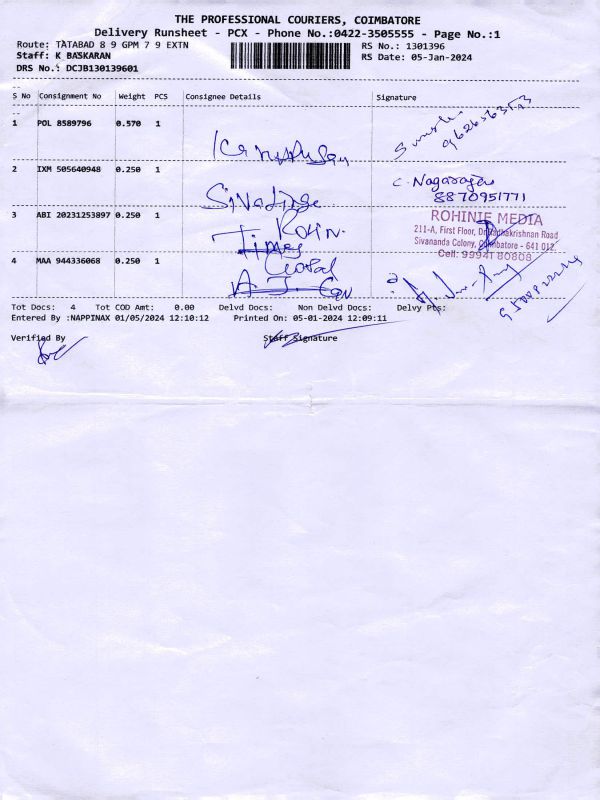 THE PROFESSIONAL COURIERS, COIMBATORE
Delivery Runsheet - PCX - Phone No.:0422-3505555 - Page No.:1
Route: TATABAD 8 9 GPM 7 9 EXTN RS No.: 1301396
Staff: K BASKARAN RS Date: 05-Jan-2024
DRS No.: DCJB130139601
S No Consignment No Weight PCS Consignee Details Signature
1 POL 8589796 0.570 1
2 IXM 505640948 0.250 1 C. Nagarajan
8870951771
3 ABI 20231253897 0.250 1 Rohin.
Times
ROHINIE MEDIA
211-A, First Floor, Dr.Radhakrishnan Road
Sivananda Colony, Coimbatore - 641 012.
Cell: 99941 80808
4 MAA 944336068 0.250 1
Tot Docs: 4 Tot COD Amt: 0.00 Delvd Docs: Non Delvd Docs: Delvy Pts:
Entered By :NAPPINAX 01/05/2024 12:10:12 Printed On: 05-01-2024 12:09:11
Verified By Staff Signature